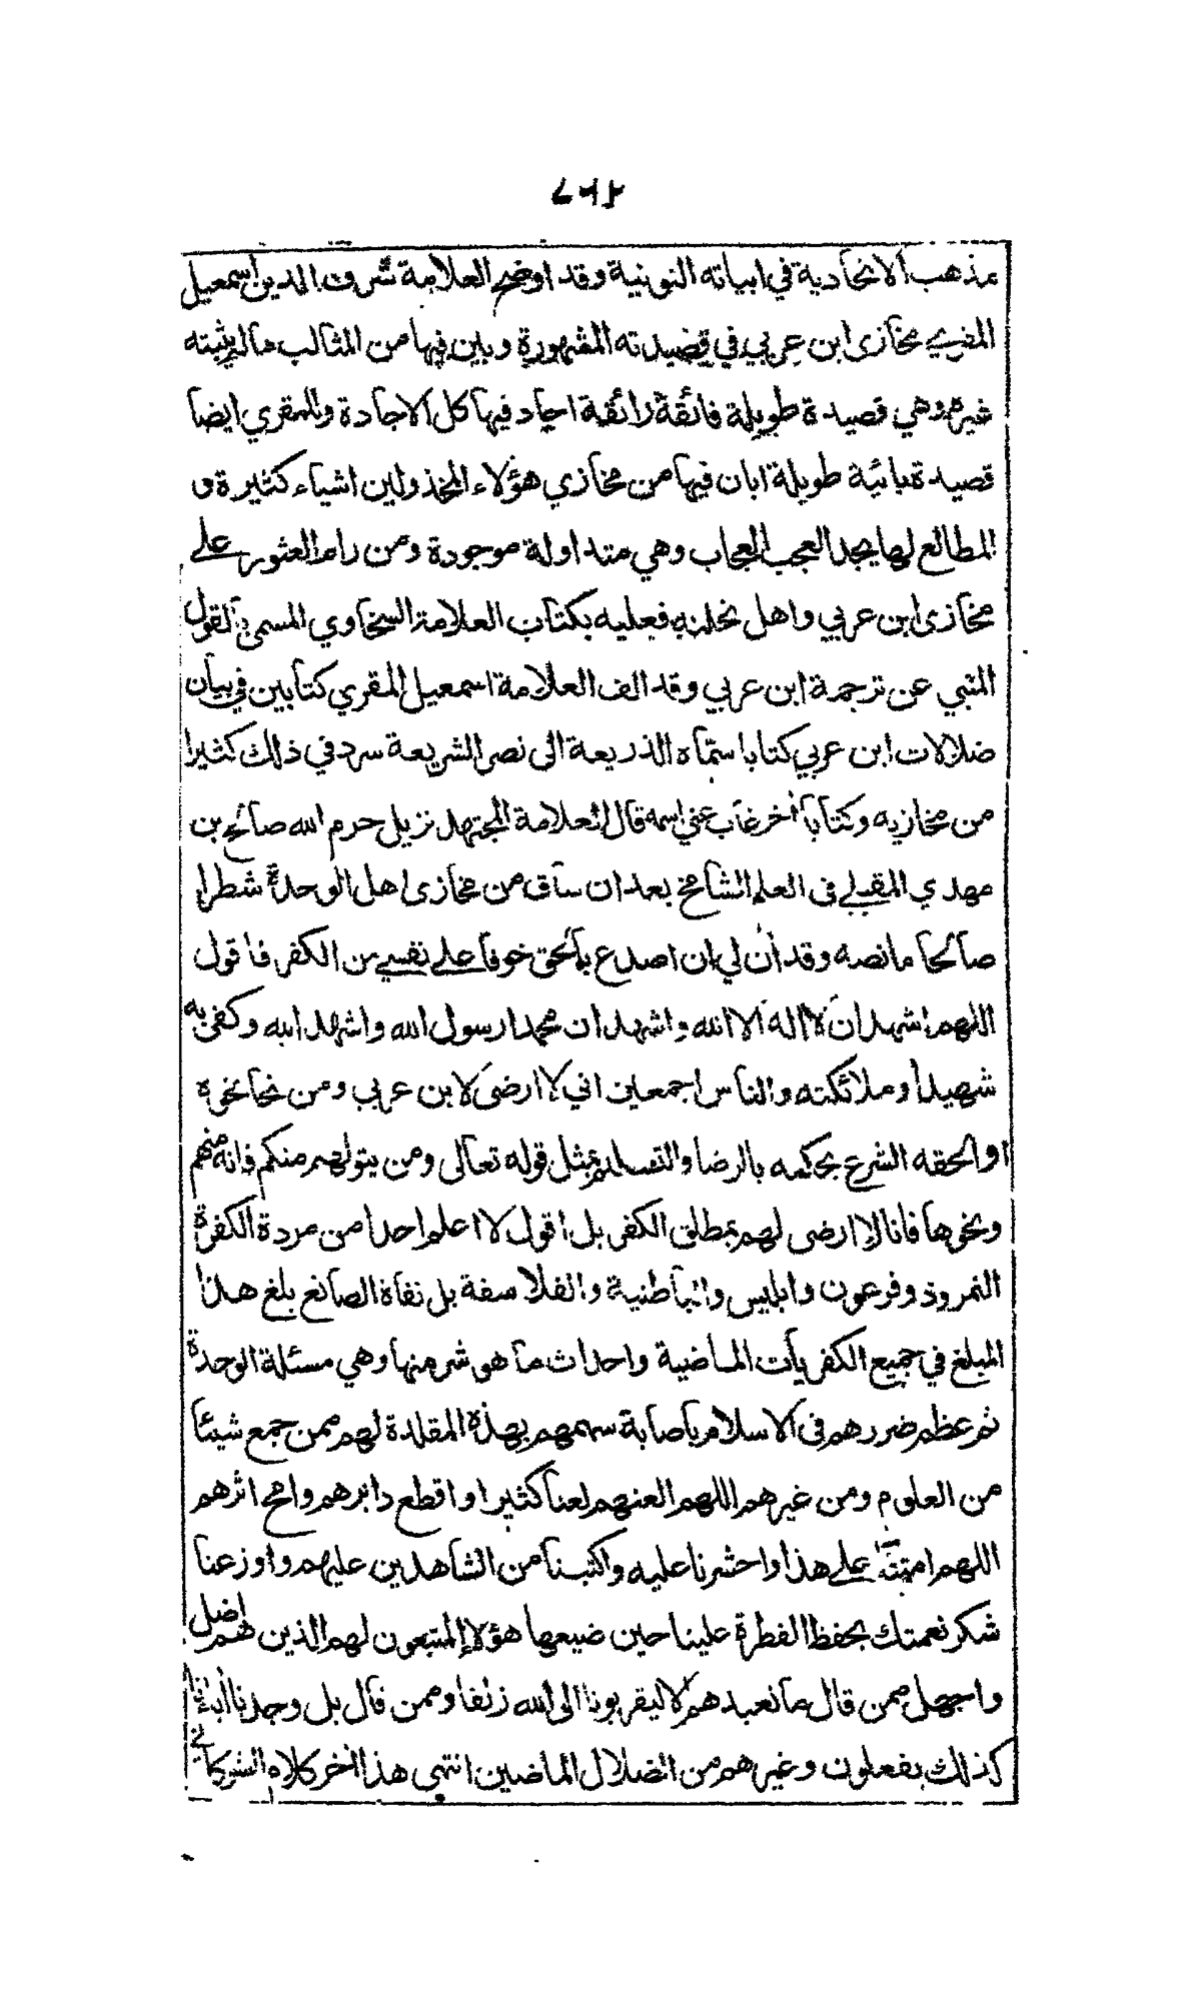 مذهب الاتحادية في ابياته النونية وقد اوضح العلامة شرف الدين اسمعيل
المقري مخازى ابن عربي في قصيدته المشهورة وبين فيها من المثالب ما لم يثبته
غيره وهي قصيدة طويلة فائقة رائقة اجاد فيها كل الاجادة وللمقري ايضا
قصيدة بائية طويلة ابان فيها من مخازي هؤلاء المخذولين اشياء كثيرة و
المطالع لها يجد العجب العجاب وهي متداولة موجودة ومن رام العثور على
مخازى ابن عربي واهل نحلته فعليه بكتاب العلامة السخاوي المسمى بالقول
المنبي عن ترجمة ابن عربي وقد الف العلامة اسمعيل المقري كتابين في بيان
ضلالات ابن عربي كتابا سماه الذريعة الى نصر الشريعة سرد في ذلك كثيرا
من مخازيه وكتابا أخر غاب عني اسمه قال العلامة المجتهد نزيل حرم الله صالح بن
مهدي المقبلي في العلم الشامخ بعد ان ساق من مخازى اهل الوحدة شطرا
صالحا ما نصه وقد أن لي ان اصدع بالحق خوفا على نفسي من الكفر فاقول
اللهم اشهد ان لا اله الا الله واشهد ان محمدا رسول الله واشهد الله وكفى به
شهيدا وملائكته والناس اجمعين اني لا ارضى لابن عربي ومن نحا نحوه
او الحقه الشرع بحكمه بالرضا والتسليم بمثل قوله تعالى ومن يتولهم منكم فانه منهم
ونحوها فانا لا ارضى لهم بمطلق الكفر بل اقول لا اعلم احدا من مردة الكفرة
النمروذ وفرعون وابليس والباطنية والفلاسفة بل نفاة الصانع بلغ هذا
المبلغ في جميع الكفريات الماضية واحداث ما هو شر منها وهي مسئلة الوحدة
ثم عظم ضررهم في الاسلام باصابة سهمهم بهذه المقلدة لهم ممن جمع شيئا
من العلوم ومن غيرهم اللهم العنهم لعنا كثيرا واقطع دابرهم وامح اثرهم
اللهم امتنا على هذا واحشرنا عليه واكتبنا من الشاهدين عليهم واوزعنا
شكر نعمتك بحفظ الفطرة علينا حين ضيعها هؤلاء المتبعون لهم الذين هم اضل
واجهل ممن قال ما نعبدهم الا ليقربونا الى الله زلفا وممن قال بل وجدنا أباءنا
كذلك يفعلون وغيرهم من الضلال الماضين انتهى هذا أخر كلام الشوكاني